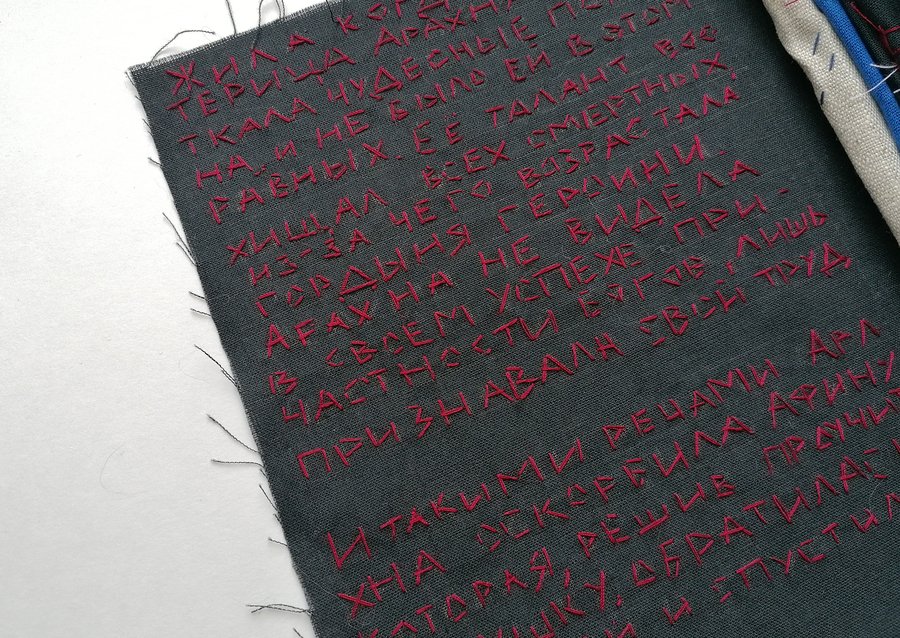 ЖИЛА
ТЕРИЦА АРАХН
ТКАЛА ЧУДЕСНЫЕ
НА, И НЕ БЫЛО ЕЙ В ЭТОМ
РАВНЫХ. ЕЁ ТАЛАНТ ВОС
ХИЩАЛ ВСЕХ СМЕРТНЫХ,
ИЗ-ЗА ЧЕГО ВОЗРАСТАЛА
ГОРДЫНЯ ГЕРОИНИ.
АРАХНА НЕ ВИДЕЛА
В СВОЕМ УСПЕХЕ ПРИ-
ЧАСТНОСТИ БОГОВ, ЛИШЬ
ПРИЗНАВАЛА СВОЙ ТРУД.
И ТАКИМИ РЕЧАМИ АРА
ХНА ОСКОРБИЛА АФИНУ
КОТОРАЯ, РЕШИВ ПРОУЧИТ
УШКУ, ОБРАТИЛАС
И СПУСТИЛ